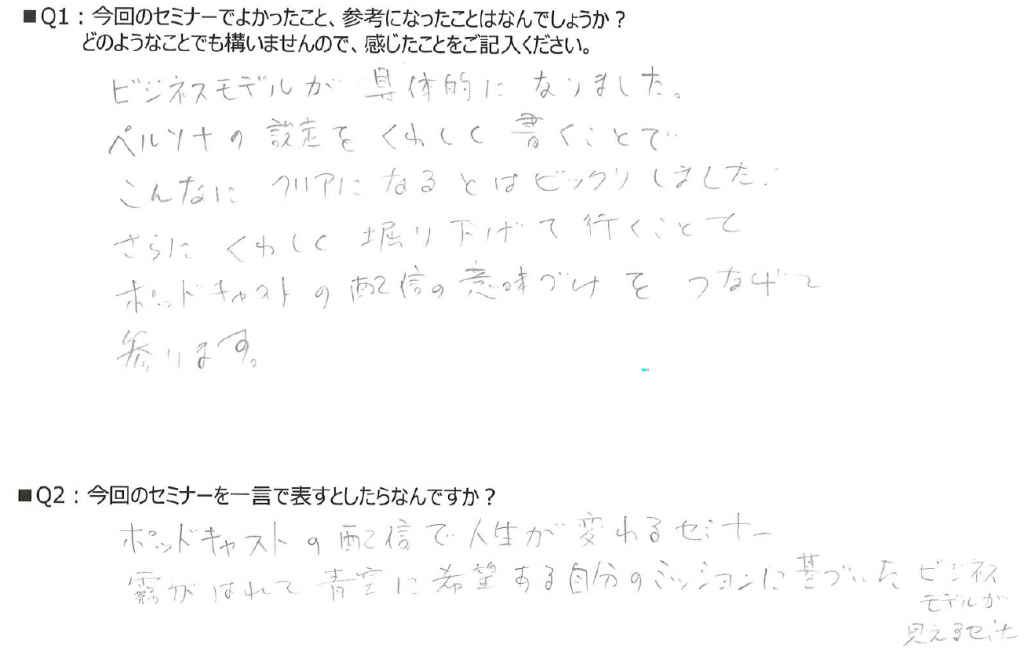 ■Q1：今回のセミナーでよかったこと、参考になったことはなんでしょうか？
どのようなことでも構いませんので、感じたことをご記入ください。
ビジネスモデルが 具体的に なりました。
ペルソナの 設定を くわしく 書くことで
こんなに クリアに なる とは ビックリ しました.
さらに くわしく 堀り下げて 行くことで
ポッドキャストの 配信の 意味づけを つなげて
参ります。
■Q2：今回のセミナーを一言で表すとしたらなんですか？
ポッドキャストの 配信で 人生が 変わるセミナー
霧がはれて 青空に希望ある自分のミッションに基づいた ビジネス
モデルが
見える